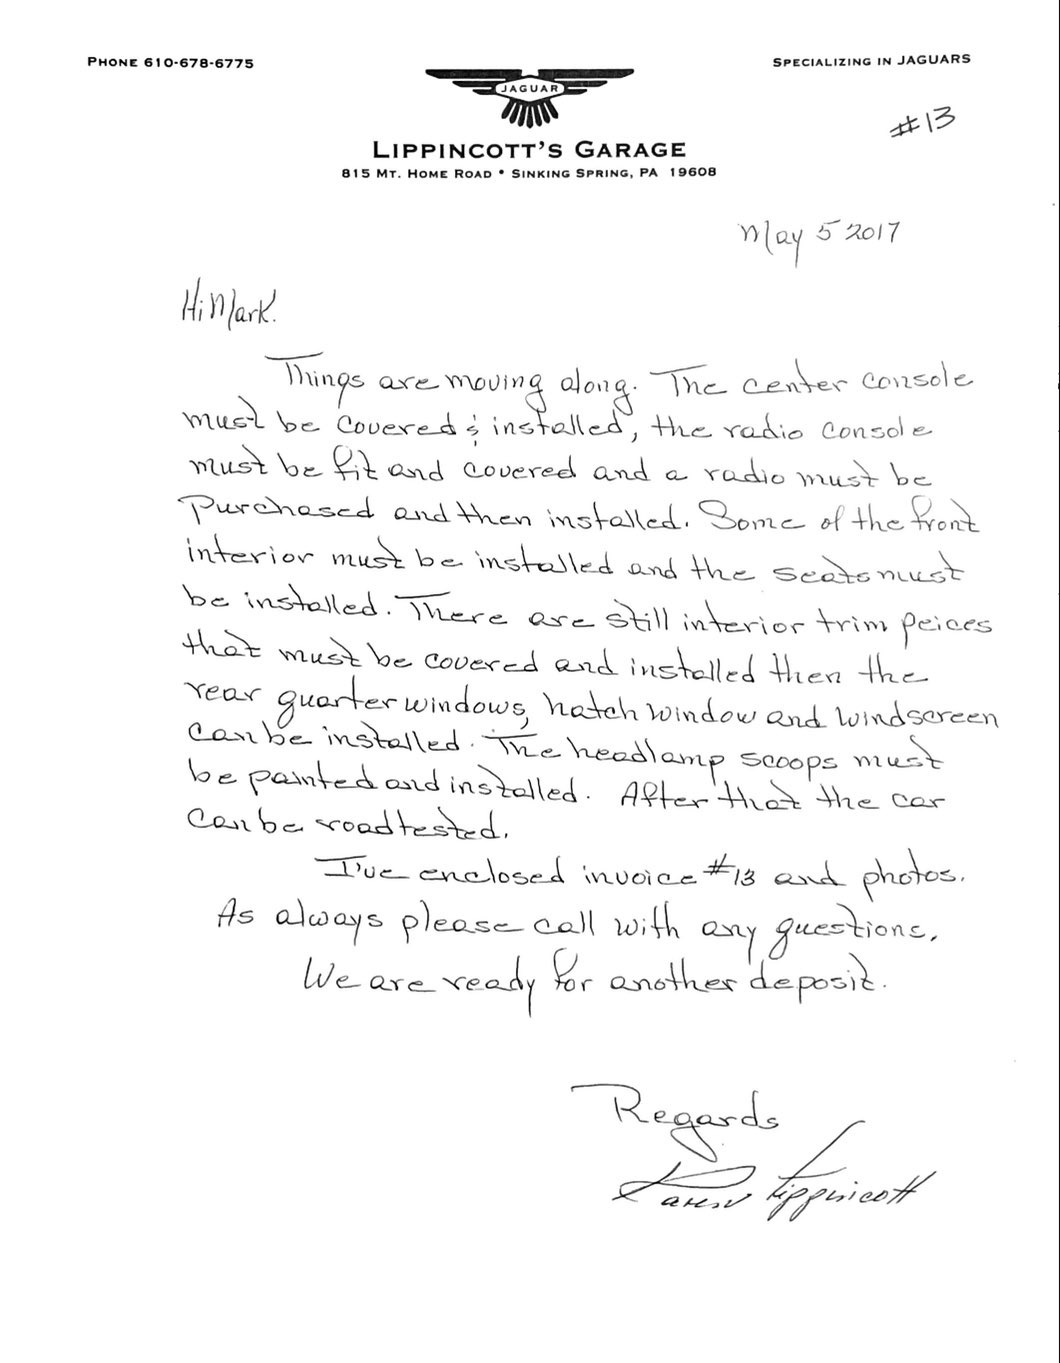 PHONE 610-678-6775
SPECIALIZING IN JAGUARS
JAGUAR
#13
LIPPINCOTT'S GARAGE
815 MT. HOME ROAD • SINKING SPRING, PA 19608
May 5 2017
Hi Mark.
Things are moving along. The center console
must be covered & installed, the radio console
must be fit and covered and a radio must be
purchased and then installed. Some of the front
interior must be installed and the seats must
be installed. There are still interior trim peices
that must be covered and installed then the
rear quarter windows, hatch window and windscreen
can be installed. The headlamp scoops must
be painted and installed. After that the car
can be roadtested.
I've enclosed invoice #13 and photos.
As always please call with any questions.
We are ready for another deposit.
Regards
Karen Lippincott